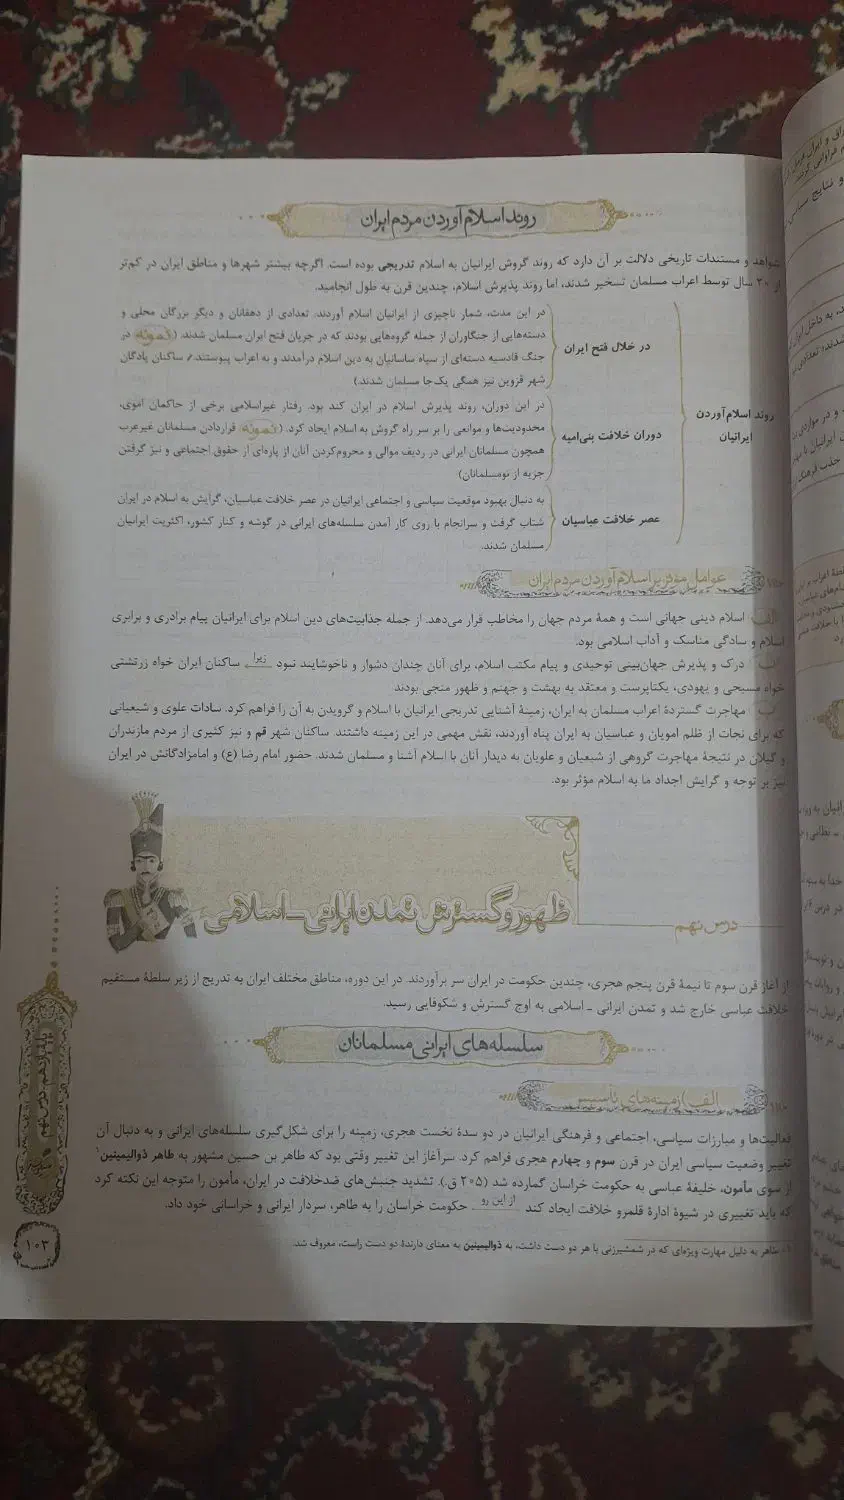 روند اسلام آوردن مردم ایران
شواهد و مستندات تاریخی دلالت بر آن دارد که روند گروش ایرانیان به اسلام تدریجی بوده است. اگرچه بیشتر شهرها و مناطق ایران در کم‌تر
از ۲۰ سال توسط اعراب مسلمان تسخیر شدند، اما روند پذیرش اسلام، چندین قرن به طول انجامید.
روند اسلام‌آوردن
ایرانیان
در خلال فتح ایران
در این مدت، شمار ناچیزی از ایرانیان اسلام آوردند. تعدادی از دهقانان و دیگر بزرگان محلی و
دسته‌هایی از جنگاوران از جمله گروه‌هایی بودند که در جریان فتح ایران مسلمان شدند. (نمونه در
جنگ قادسیه دسته‌ای از سپاه ساسانیان به دین اسلام درآمدند و به اعراب پیوستند. / ساکنان پادگان
شهر قزوین نیز همگی یک‌جا مسلمان شدند.)
دوران خلافت بنی‌امیه
در این دوران، روند پذیرش اسلام در ایران کند بود. رفتار غیراسلامی برخی از حاکمان اموی،
محدودیت‌ها و موانعی را بر سر راه گروش به اسلام ایجاد کرد. (نمونه قراردادن مسلمانان غیرعرب
همچون مسلمانان ایرانی در ردیف موالی و محروم‌کردن آنان از پاره‌ای از حقوق اجتماعی و نیز گرفتن
جزیه از نومسلمانان)
عصر خلافت عباسیان
به دنبال بهبود موقعیت سیاسی و اجتماعی ایرانیان در عصر خلافت عباسیان، گرایش به اسلام در ایران
شتاب گرفت و سرانجام با روی کار آمدن سلسله‌های ایرانی در گوشه و کنار کشور، اکثریت ایرانیان
مسلمان شدند.
عوامل مؤثر بر اسلام آوردن مردم ایران
الف اسلام دینی جهانی است و همهٔ مردم جهان را مخاطب قرار می‌دهد. از جمله جذابیت‌های دین اسلام برای ایرانیان پیام برادری و برابری
اسلام و سادگی مناسک و آداب اسلامی بود.
ب درک و پذیرش جهان‌بینی توحیدی و پیام مکتب اسلام، برای آنان چندان دشوار و ناخوشایند نبود زیرا ساکنان ایران خواه زرتشتی
خواه مسیحی و یهودی، یکتاپرست و معتقد به بهشت و جهنم و ظهور منجی بودند.
پ مهاجرت گستردهٔ اعراب مسلمان به ایران، زمینهٔ آشنایی تدریجی ایرانیان با اسلام و گرویدن به آن را فراهم کرد. سادات علوی و شیعیانی
که برای نجات از ظلم امویان و عباسیان به ایران پناه آوردند، نقش مهمی در این زمینه داشتند. ساکنان شهر قم و نیز کثیری از مردم مازندران
و گیلان در نتیجهٔ مهاجرت گروهی از شیعیان و علویان به دیدار آنان با اسلام آشنا و مسلمان شدند. حضور امام رضا (ع) و امامزادگانش در ایران
نیز بر توجه و گرایش اجداد ما به اسلام مؤثر بود.
درس نهم
ظهور و گسترش تمدن ایرانی ـ اسلامی
از آغاز قرن سوم تا نیمهٔ قرن پنجم هجری، چندین حکومت در ایران سر برآوردند. در این دوره، مناطق مختلف ایران به تدریج از زیر سلطهٔ مستقیم
خلافت عباسی خارج شد و تمدن ایرانی ـ اسلامی به اوج گسترش و شکوفایی رسید.
سلسله‌های ایرانی مسلمانان
الف) زمینه‌های تأسیس
فعالیت‌ها و مبارزات سیاسی، اجتماعی و فرهنگی ایرانیان در دو سدهٔ نخست هجری، زمینه را برای شکل‌گیری سلسله‌های ایرانی و به دنبال آن
تغییر وضعیت سیاسی ایران در قرن سوم و چهارم هجری فراهم کرد. سرآغاز این تغییر وقتی بود که طاهر بن حسین مشهور به طاهر ذوالیمینین۱
از سوی مأمون، خلیفهٔ عباسی به حکومت خراسان گمارده شد (۲۰۵ ق.). تشدید جنبش‌های ضدخلافت در ایران، مأمون را متوجه این نکته کرد
که باید تغییری در شیوهٔ ادارهٔ قلمرو خلافت ایجاد کند از این رو حکومت خراسان را به طاهر، سردار ایرانی و خراسانی خود داد.
۱- طاهر به دلیل مهارت ویژه‌ای که در شمشیرزنی با هر دو دست داشت، به ذوالیمینین به معنای دارندهٔ دو دست راست، معروف شد.
۱۰۳